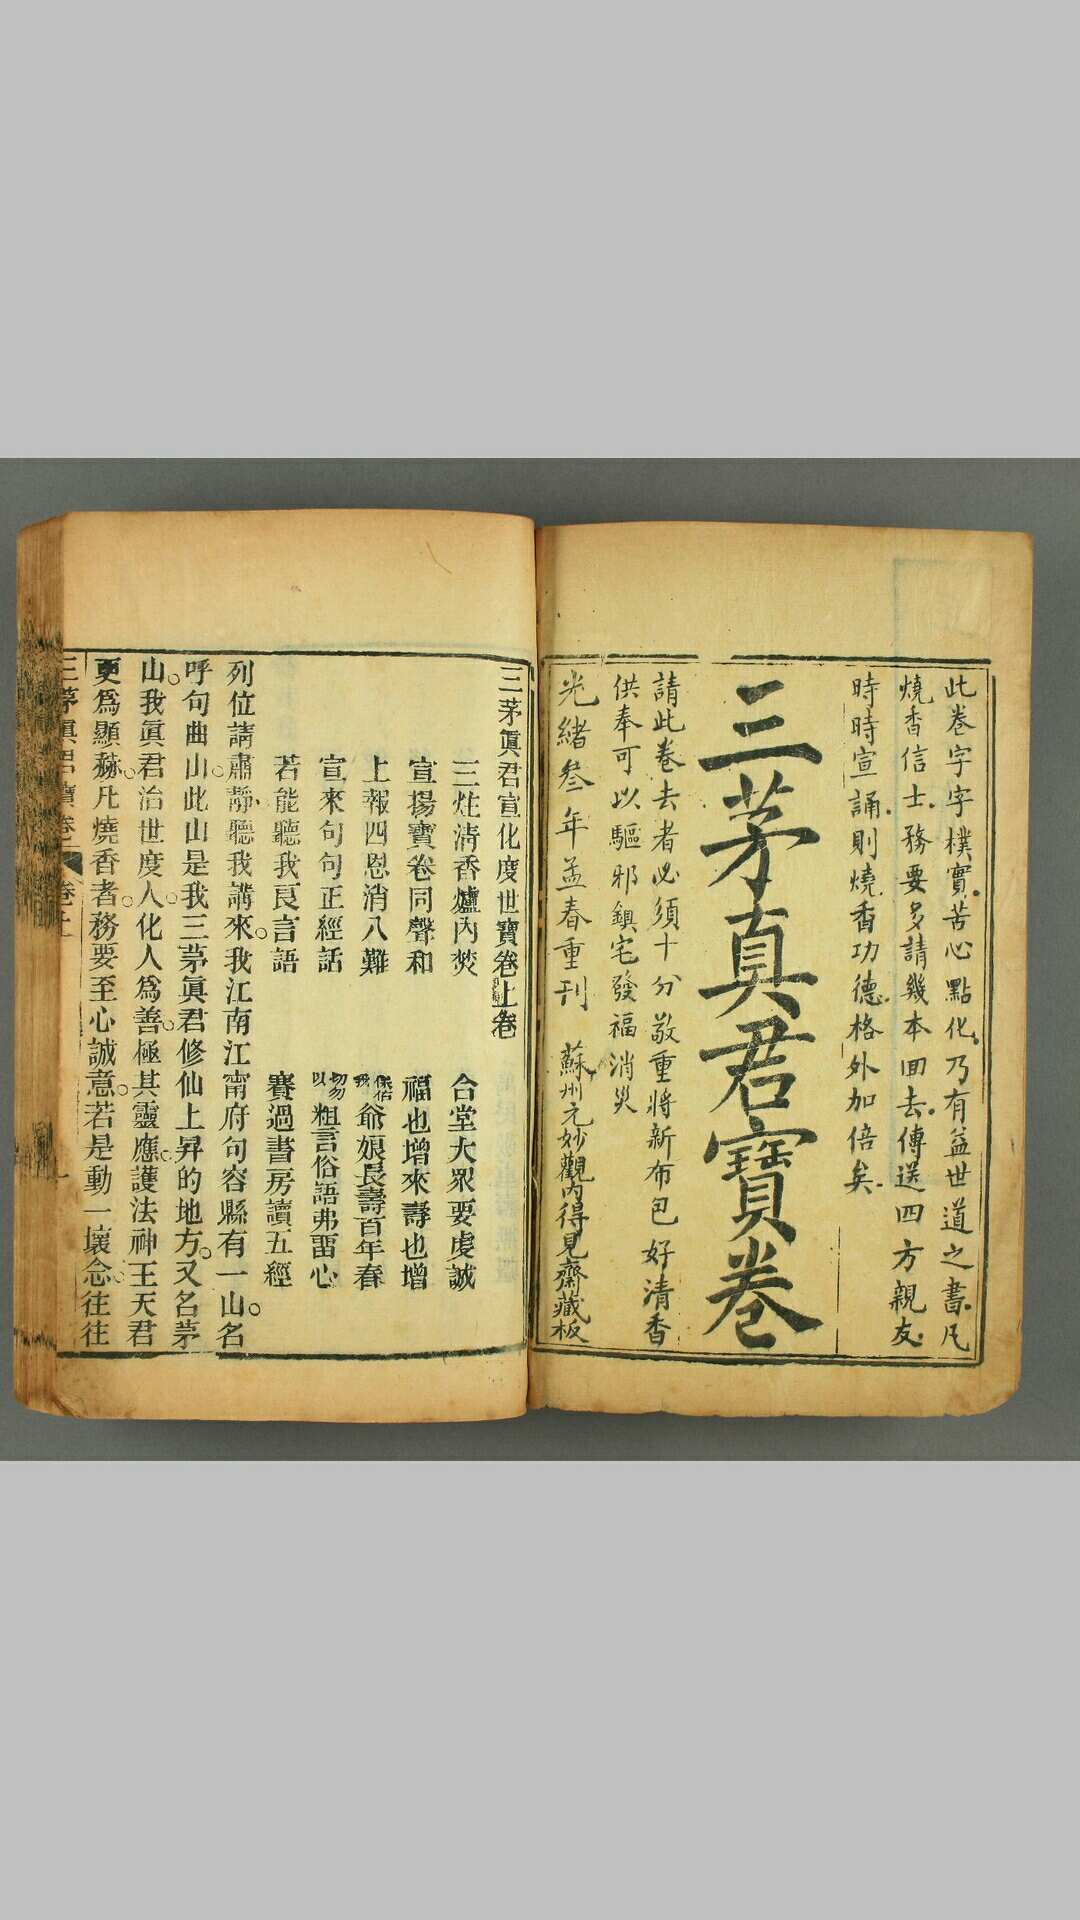 此卷字字樸實苦心點化乃有益世道之書凡
燒香信士務要多請幾本回去傳送四方親友
時時宣誦則燒香功德格外加倍矣
三茅真君寶卷
請此卷去者必須十分敬重將新布包好清香
供奉可以驅邪鎮宅發福消災
光緒叄年孟春重刊 蘇州元妙觀內得見齋藏板
三茅眞君宣化度世寶卷上卷
三炷清香爐內焚 合堂大眾要虔誠
宣揚寶卷同聲和 福也增來壽也增
上報四恩消八難 保佑我 爺娘長壽百年春
宣來句句正經話 切勿以 粗言俗語弗畱心
若能聽我良言語 賽過書房讀五經
列位請肅靜聽我講來。我江南江甯府句容縣有一山。名
呼句曲山。此山是我三茅眞君修仙上昇的地方。又名茅
山。我眞君治世度人。化人爲善。極其靈應。護法神王天君
更爲顯赫。凡燒香者。務要至心誠意。若是動一壞念。往往
三茅眞君寶卷 卷上 一